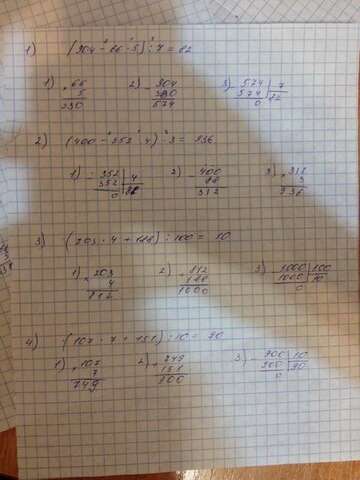 1) (904 - 66 · 5) : 7 = 82
1) × 66 2) - 904 3) - 574 | 7
5 330 574 | 82
330 574 0
2) (400 - 352 : 4) · 3 = 936
1) - 352 | 4 2) - 400 3) × 312
352 | 88 88 3
0 312 936
3) (203 · 4 + 188) : 100 = 10
1) × 203 2) + 812 3) - 1000 | 100
4 188 1000 | 10
812 1000 0
4) (107 · 7 + 151) : 10 = 90
1) × 107 2) + 749 3) - 900 | 10
7 151 900 | 90
749 900 0